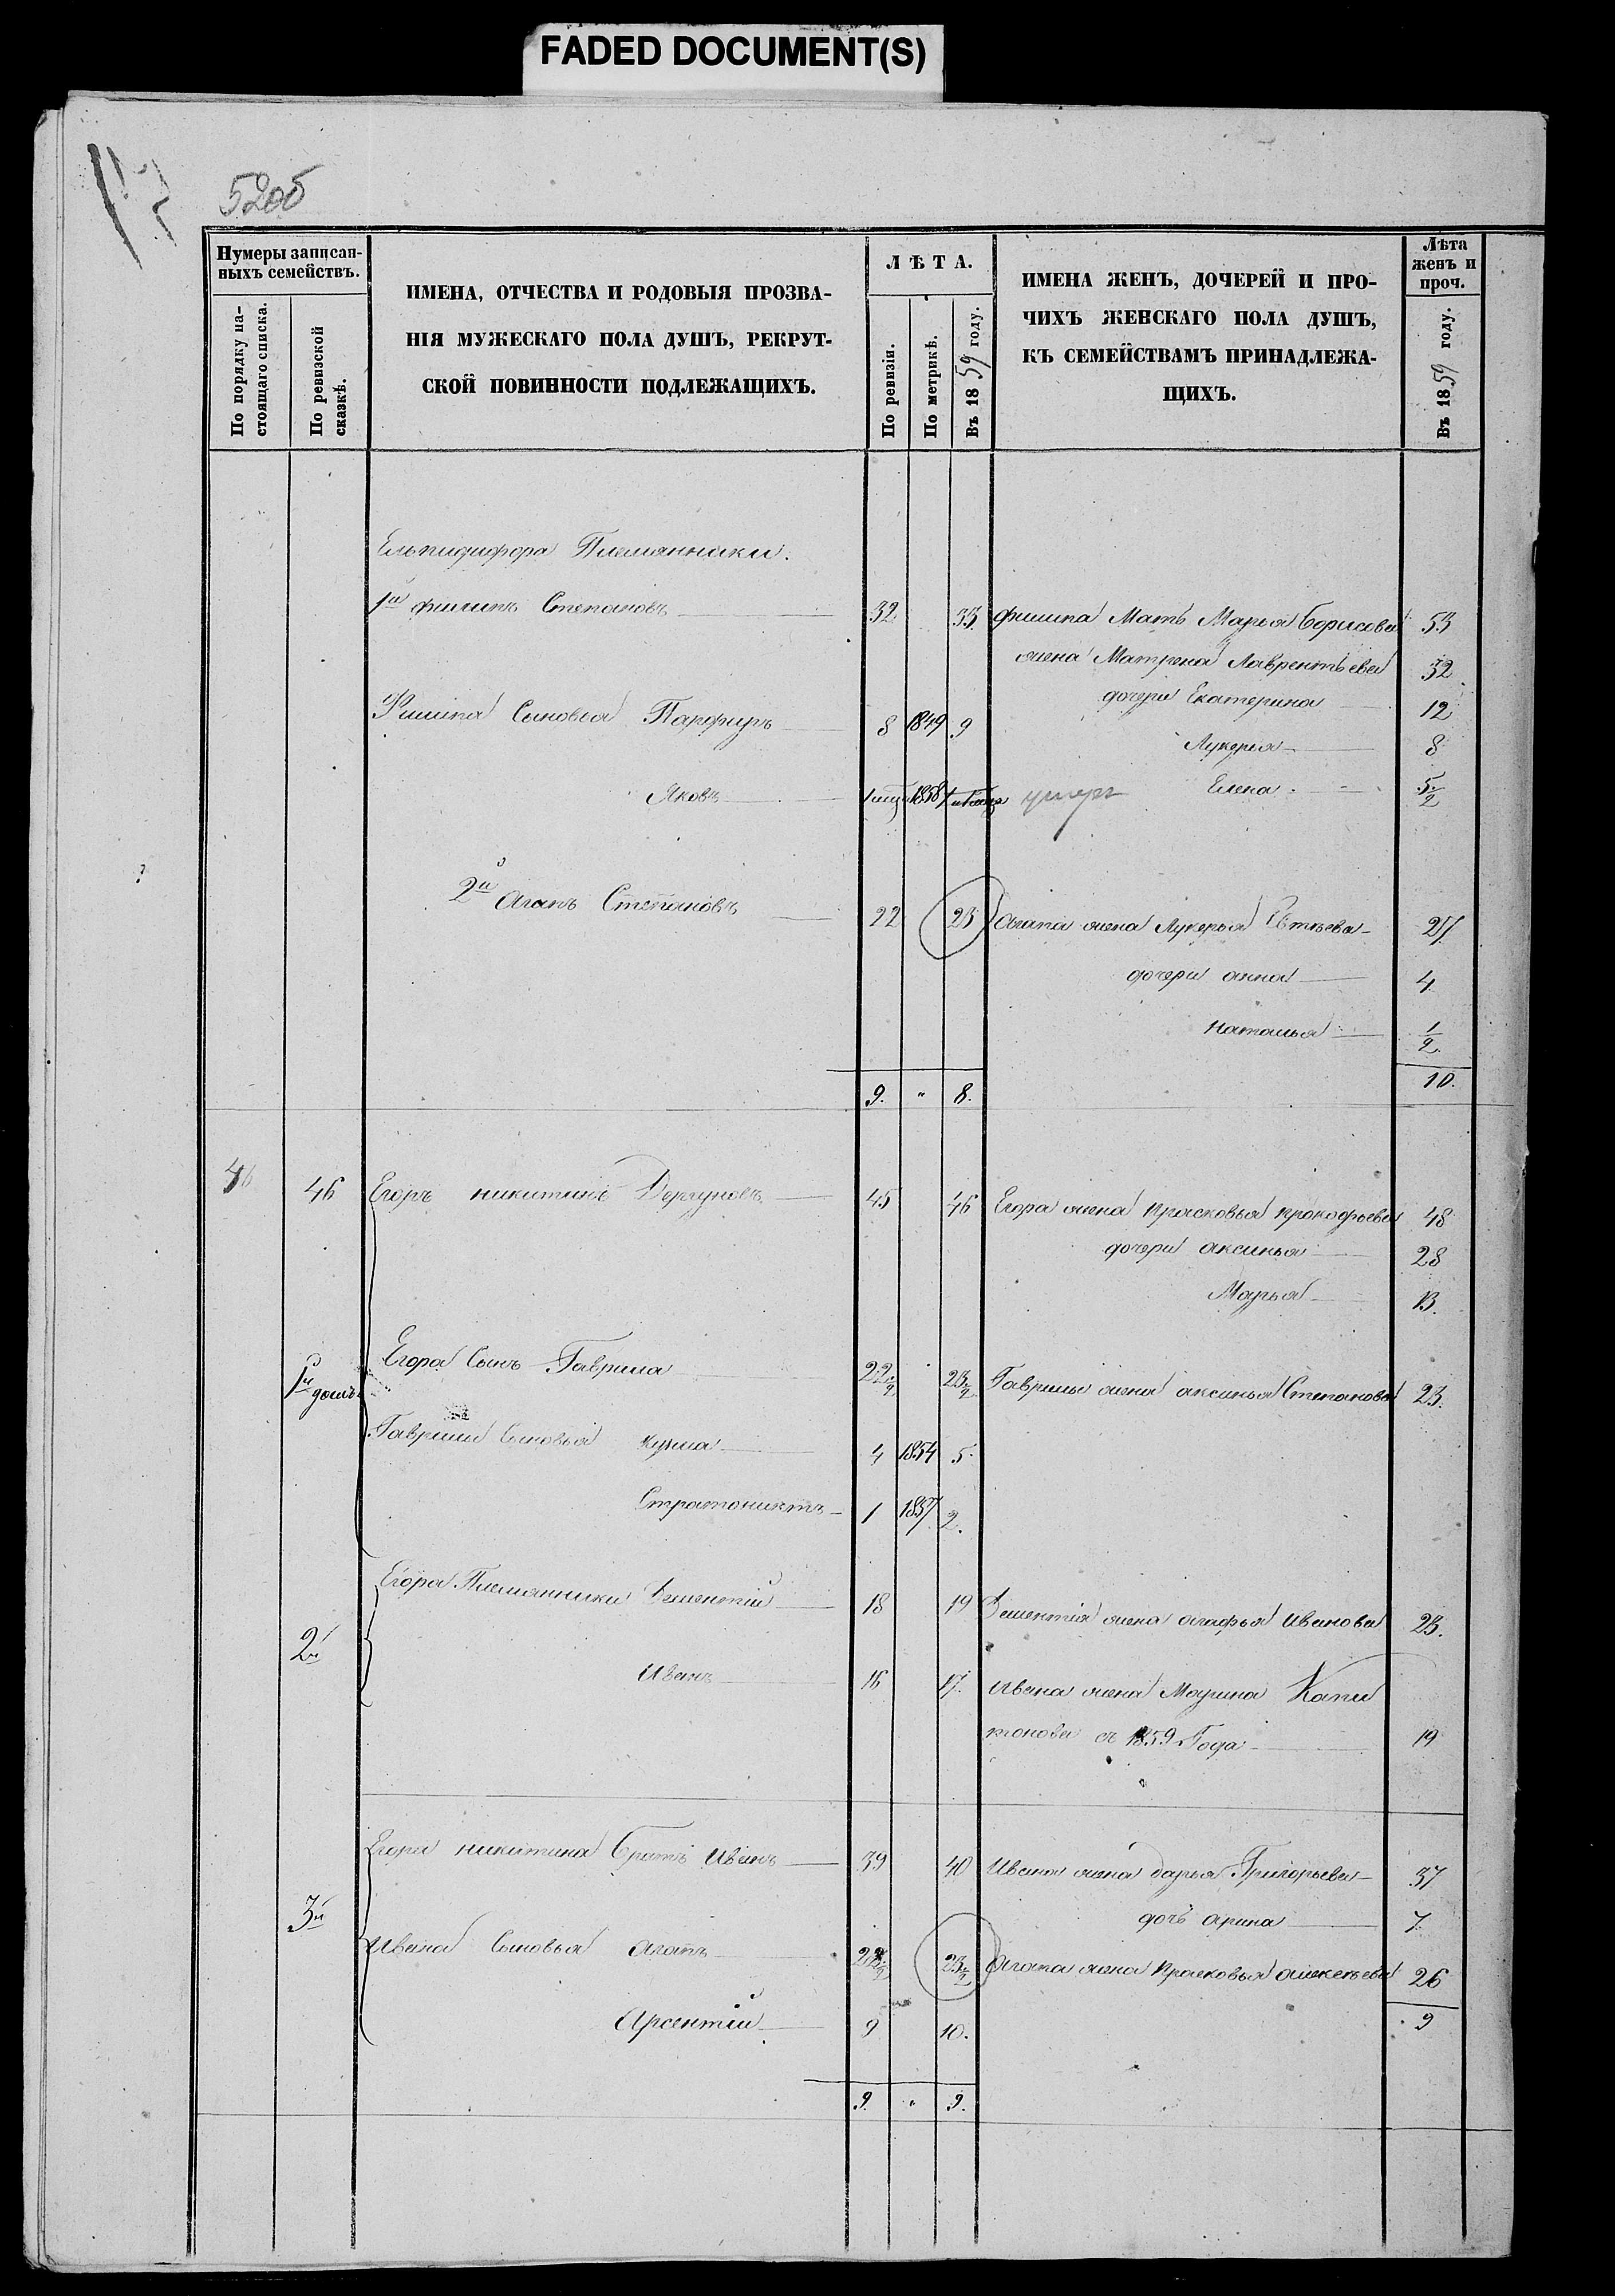 FADED DOCUMENT(S)
5205
Нумеры записан-
ныхъ семействъ.
По порядку на-
стоящаго списка.
По ревизской
сказкѣ.
ИМЕНА, ОТЧЕСТВА И РОДОВЫЯ ПРОЗВА-
НІЯ МУЖЕСКАГО ПОЛА ДУШЪ, РЕКРУТ-
СКОЙ ПОВИННОСТИ ПОДЛЕЖАЩИХЪ.
ЛѢТА.
По ревизіи.
По метрикѣ.
Въ 1859 году.
ИМЕНА ЖЕНЪ, ДОЧЕРЕЙ И ПРО-
ЧИХЪ ЖЕНСКАГО ПОЛА ДУШЪ,
КЪ СЕМЕЙСТВАМЪ ПРИНАДЛЕЖА-
ЩИХЪ.
Лѣта
женъ и
проч.
Въ 1859 году.
Ельпидифора Племянники.
1й Филипъ Степановъ 32 33 Филипа Мать Марья Борисова 53
жена Матрена Лаврентьева 32
дочери Екатерина 12
Филипа Сыновья Парфиръ 8 1849 9
Лукерья 8
Яковъ 1858 умеръ Елена 5½
2й Агапъ Степановъ 22 23 Агапа жена Лукерья 27
дочери Анна 4
Наталья ½
10.
9. " 8.
46 46 Егоръ Никитинъ Дергуновъ 45 46 Егора жена Прасковья Прокофьева 48
дочери Аксинья 28
Марья 13.
1й домъ Егора Сынъ Гаврила 22½ 23½ Гаврилы жена Аксинья Степанова 23.
Гаврилы Сыновья Кузма 4 1854 5.
Стратоникъ 1 1857 2.
Егора Племянники Дементій 18 19 Дементія жена Агафья Иванова 23.
2й
Иванъ 16 17. Ивана жена Марина Капи
тонова съ 1859 Года 19
Егора Никитина Братъ Иванъ 39 40 Ивана жена Дарья Григорьева 37
3й
дочь Арина 7.
Ивана Сыновья Агапъ 22½ 23½ Агапа жена Прасковья Алексѣева 26
Арсентій 9 10.
9
9. " 9.